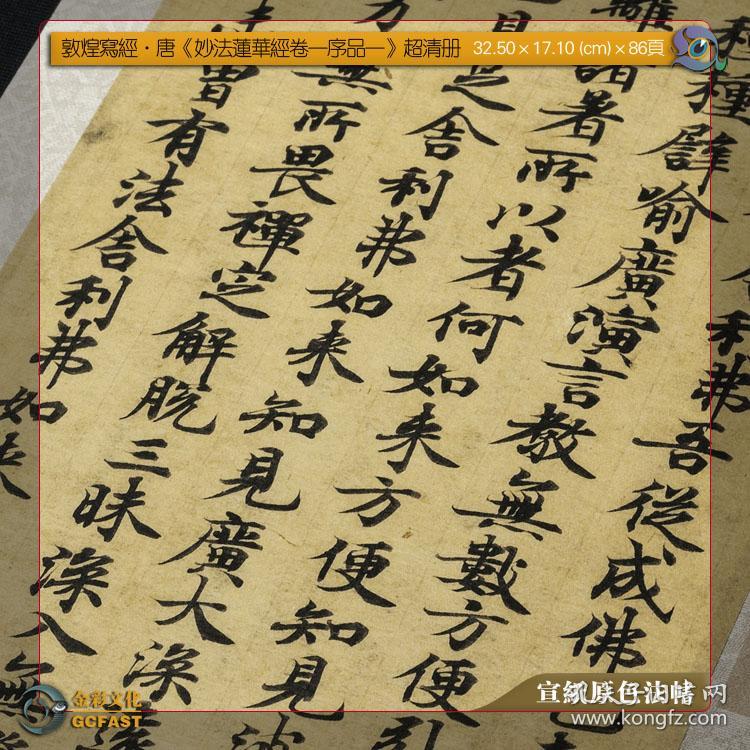 敦煌寫經・唐《妙法蓮華經卷一序品一》超清册 32.50×17.10 (cm)×86頁
舍利弗吾從成佛
種種譬喻廣演言教無數方便引
離諸著所以者何如来方便知見波
足舍利弗如来知見廣大深
無所畏禪定解脫三昧深入無
曾有法舍利弗如来
金彩文化
GCFAST
宣紙原色法帖
www.kongfz.com